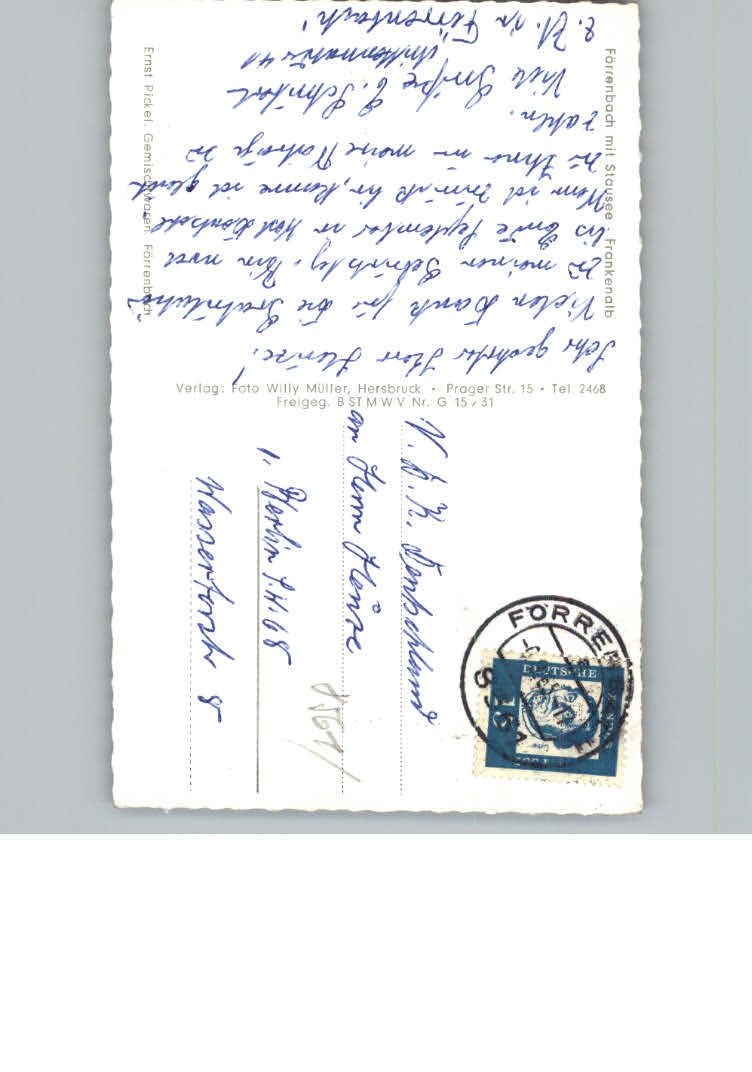 Förrenbach mit Stausee Frankenalb
Ernst Pickel, Gemischtwaren, Förrenbach
Sehr geehrter Herr Heinze!
Vielen Dank für die Gratulation
zu meinem Geburtstag. Bin noch
bis Ende September in Westdeutschl.
Wenn ich zurück bin, komme ich gleich
zu Ihnen um meine Beiträge zu
zahlen.
Viele Grüße E.
z. Zt. in Förrenbach
Verlag: Foto Willy Müller, Hersbruck • Prager Str. 15 • Tel. 2468
Freigeg. B ST M W V Nr. G 15 / 31
V. d. K. Deutschland
an Herrn Heinze
1. Berlin S.W. 68
Wassertorstr 8
8561
FÖRRENBACH
8561
DEUTSCHE
15